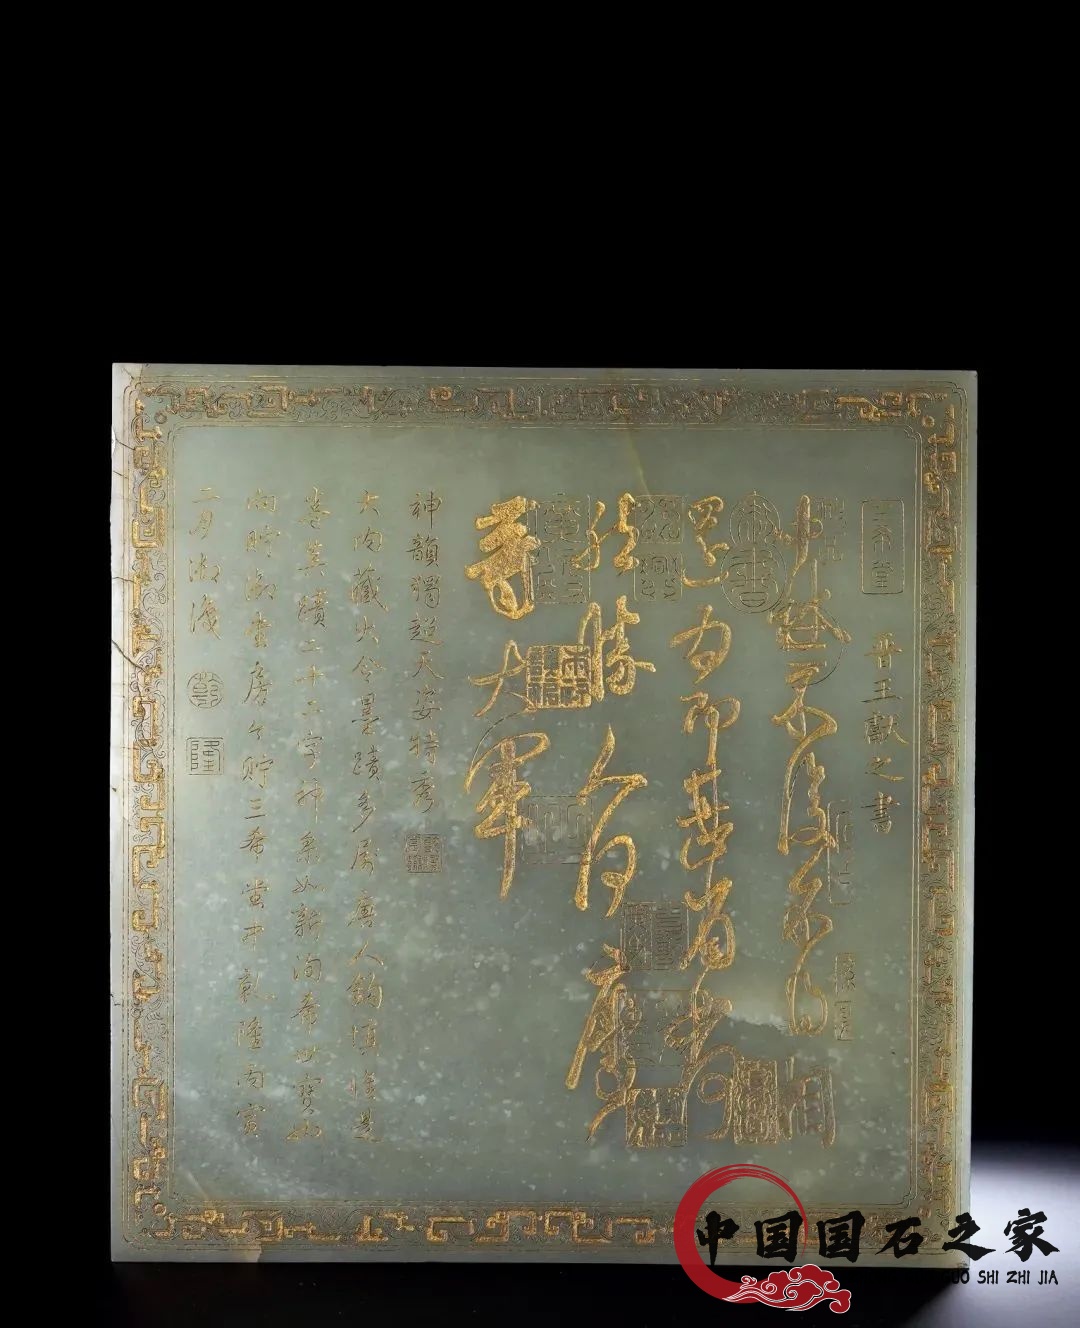 三希堂
晋王獻之書
中秋不復不得相
還為即甚省如何
然勝人何慶
等大軍
神韻獨超天姿特秀
大内藏大令墨蹟多屬唐人鈎填惟是
卷真蹟二十二字神采如新洵希世寶也
向貯御書房今貯三希堂中乾隆丙寅
二月御識
乾
隆
中国国石之家
UO SHI ZHI JIA